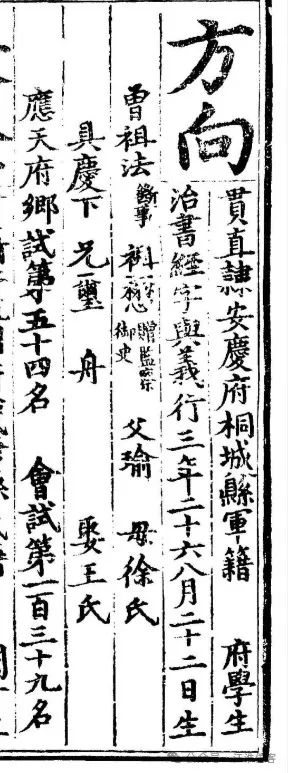 方向
貫直隸安慶府桐城縣軍籍 府學生
治書經字與義行三年二十六八月二十二日生
曾祖法斷事 祖懋贈監察御史 父瑜 母徐氏
具慶下 兄璽 舟 娶王氏
應天府鄉試第五十四名 會試第一百三十九名